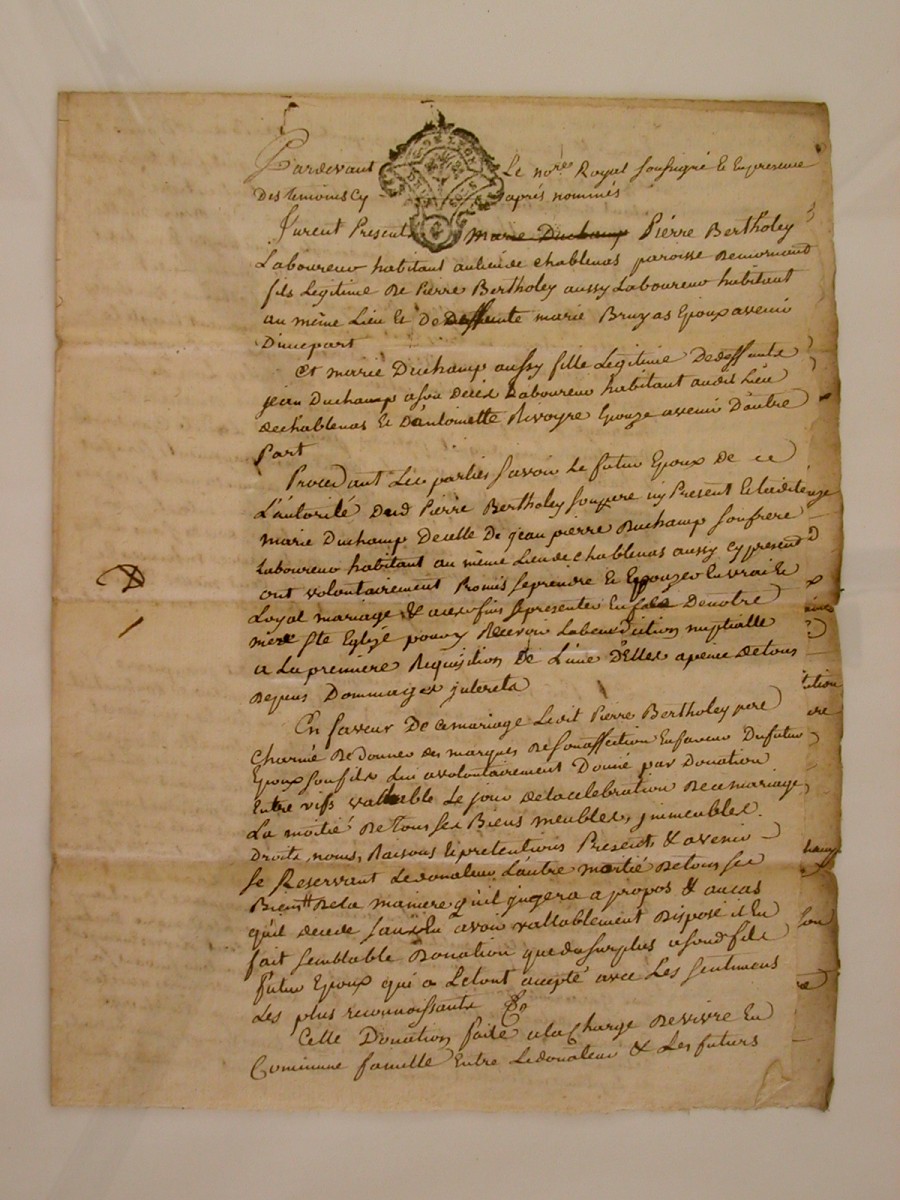 Pardevant Le no.re Royal soussigné Et En presence
Des temoins cy après nommés
furent Presents marie Duchamp Piérre Bertholey
Laboureur habitant au lieu de chablenas paroisse de mornant
fils Legitime De Pierre Bertholey aussy Laboureur habitant
au même Lieu Et de deffunte marie Bruyas Epoux avenir
D'une part
Et marie Duchamp aussy fille Legitime De deffunts
jean Duchamp a son décés Laboureur habitant audit Lieu
de chablenas Et D'antoinette Rivoyre Epouze avenir D'autre
Part
Procedant Les parties savoir Le futur Epoux De
L'autorité dud Pierre Bertholey son pere icy Present Et ladite
marie Duchamp De celle De jean pierre Duchamp son frere
Laboureur habitant au même Lieu de chablenas aussy cy present
ont volontairement Promis se prendre Et Epouzer En vrai Et
Loyal mariage & aux fins se presenter En face De notre
mere Ste Eglize pour y Recevoir La benediction nuptialle
a La premiere Requisition De L'une D'Elles a peine de tous
depens Dommages interets
En faveur De ce mariage Ledit Pierre Bertholey pere
charmé De donner des marques De son affection En faveur Du futur
Epoux son fils Lui a volontairement Donné par Donation
Entre vifs vallable Le jour de la celebration De ce mariage
La moitié De tous ses Biens meubles, immeubles
Droits, noms, Raisons Et pretentions Presents & avenir
Se Reservant Le donateur L'autre moitié De tous ses
Biens De la maniere qu'il jugera a propos & au cas
qu'il decede sans En avoir vallablement Disposé il En
fait semblable Donation que du surplus a son d fils
futur Epoux qui a Letout accepté avec Les sentimens
Les plus reconnoissants
Cette Donation faite a la Charge De vivre En
Commune famille Entre Le donateur & Les futurs